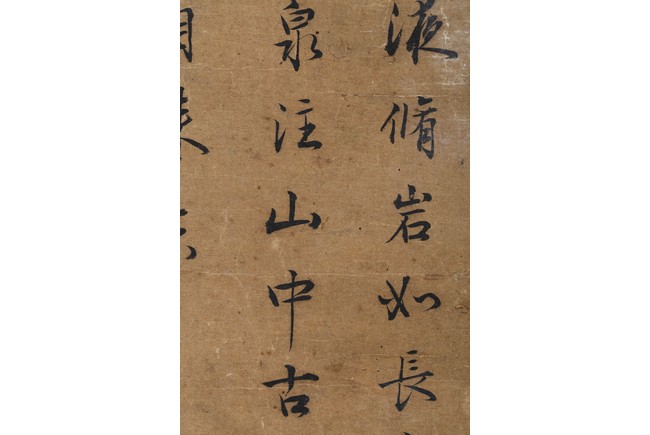 液脩岩如長
泉注山中古